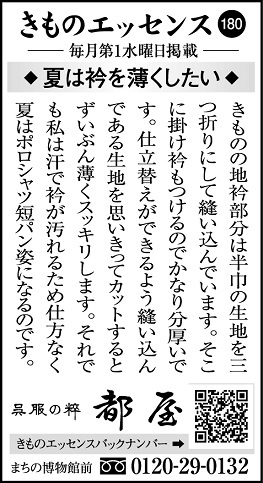 きものエッセンス 180
毎月第1水曜日掲載
◆夏は衿を薄くしたい◆
きものの地衿部分は半巾の生地を三
つ折りにして縫い込んでいます。そこ
に掛け衿もつけるのでかなり分厚いで
す。仕立替えができるよう縫い込ん
である生地を思いきってカットすると
ずいぶん薄くスッキリします。それで
も私は汗で衿が汚れるため仕方なく
夏はポロシャツ短パン姿になるのです。
呉服の粋 都屋
きものエッセンスバックナンバー ➡
まちの博物館前 0120-29-0132